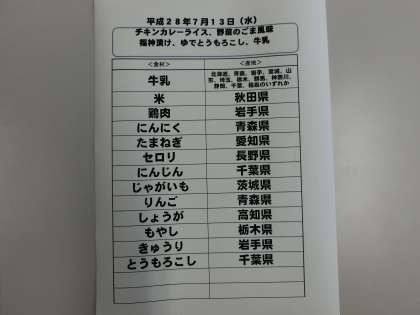 平成28年7月13日（水）
チキンカレーライス、野菜のごま風味
福神漬け、ゆでとうもろこし、牛乳
＜食材＞ ＜産地＞
牛乳 北海道、青森、岩手、宮城、山形、埼玉、栃木、群馬、神奈川、静岡、千葉、福島のいずれか
米 秋田県
鶏肉 岩手県
にんにく 青森県
たまねぎ 愛知県
セロリ 長野県
にんじん 千葉県
じゃがいも 茨城県
りんご 青森県
しょうが 高知県
もやし 栃木県
きゅうり 岩手県
とうもろこし 千葉県